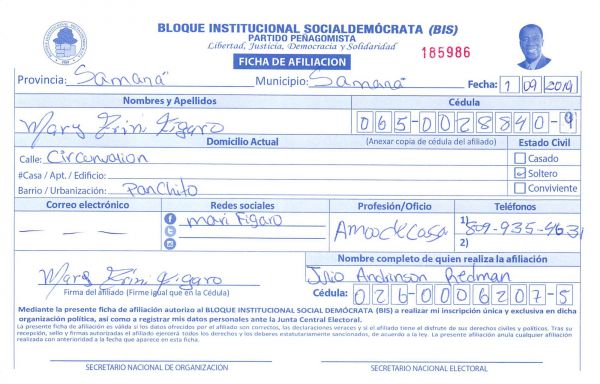 BLOQUE INSTITUCIONAL SOCIALDEMÓCRATA (BIS)
PARTIDO PEÑAGOMISTA
Libertad, Justicia, Democracia y Solidaridad
185986
FICHA DE AFILIACION
Provincia: Samaná Municipio: Samaná Fecha: 1 09 2019
Nombres y Apellidos Cédula
Mary Trini Figaro 065-0028840-9
Domicilio Actual (Anexar copia de cédula del afiliado) Estado Civil
Calle: Circunvalion Casado
#Casa / Apt. / Edificio: Soltero
Barrio / Urbanización: Panchito Conviviente
Correo electrónico Redes sociales Profesión/Oficio Teléfonos
mari Figaro Amo de Casa 1) 809-935-4631
2)
Nombre completo de quien realiza la afiliación
Mary Trini Figaro Julio Andrinson Redman
Firma del afiliado (Firme igual que en la Cédula) Cédula: 026-0006207-5
Mediante la presente ficha de afiliación autorizo al BLOQUE INSTITUCIONAL SOCIAL DEMÓCRATA (BIS) a realizar mi inscripción única y exclusiva en dicha
organización política, así como a registrar mis datos personales ante la Junta Central Electoral.
La presente ficha de afiliación es válida si los datos ofrecidos por el afiliado son correctos, las declaraciones veraces y si el afiliado tiene el disfrute de sus derechos civiles y políticos. Tras su
recepción, sello y firmas autorizadas el afiliado ejercerá todos los derechos y los deberes estatutariamente sancionados, de acuerdo a la ley. La presente afiliación anula cualquier afiliación
realizada con anterioridad a la fecha que aparece en esta ficha.
SECRETARIO NACIONAL DE ORGANIZACIÓN SECRETARIO NACIONAL ELECTORAL